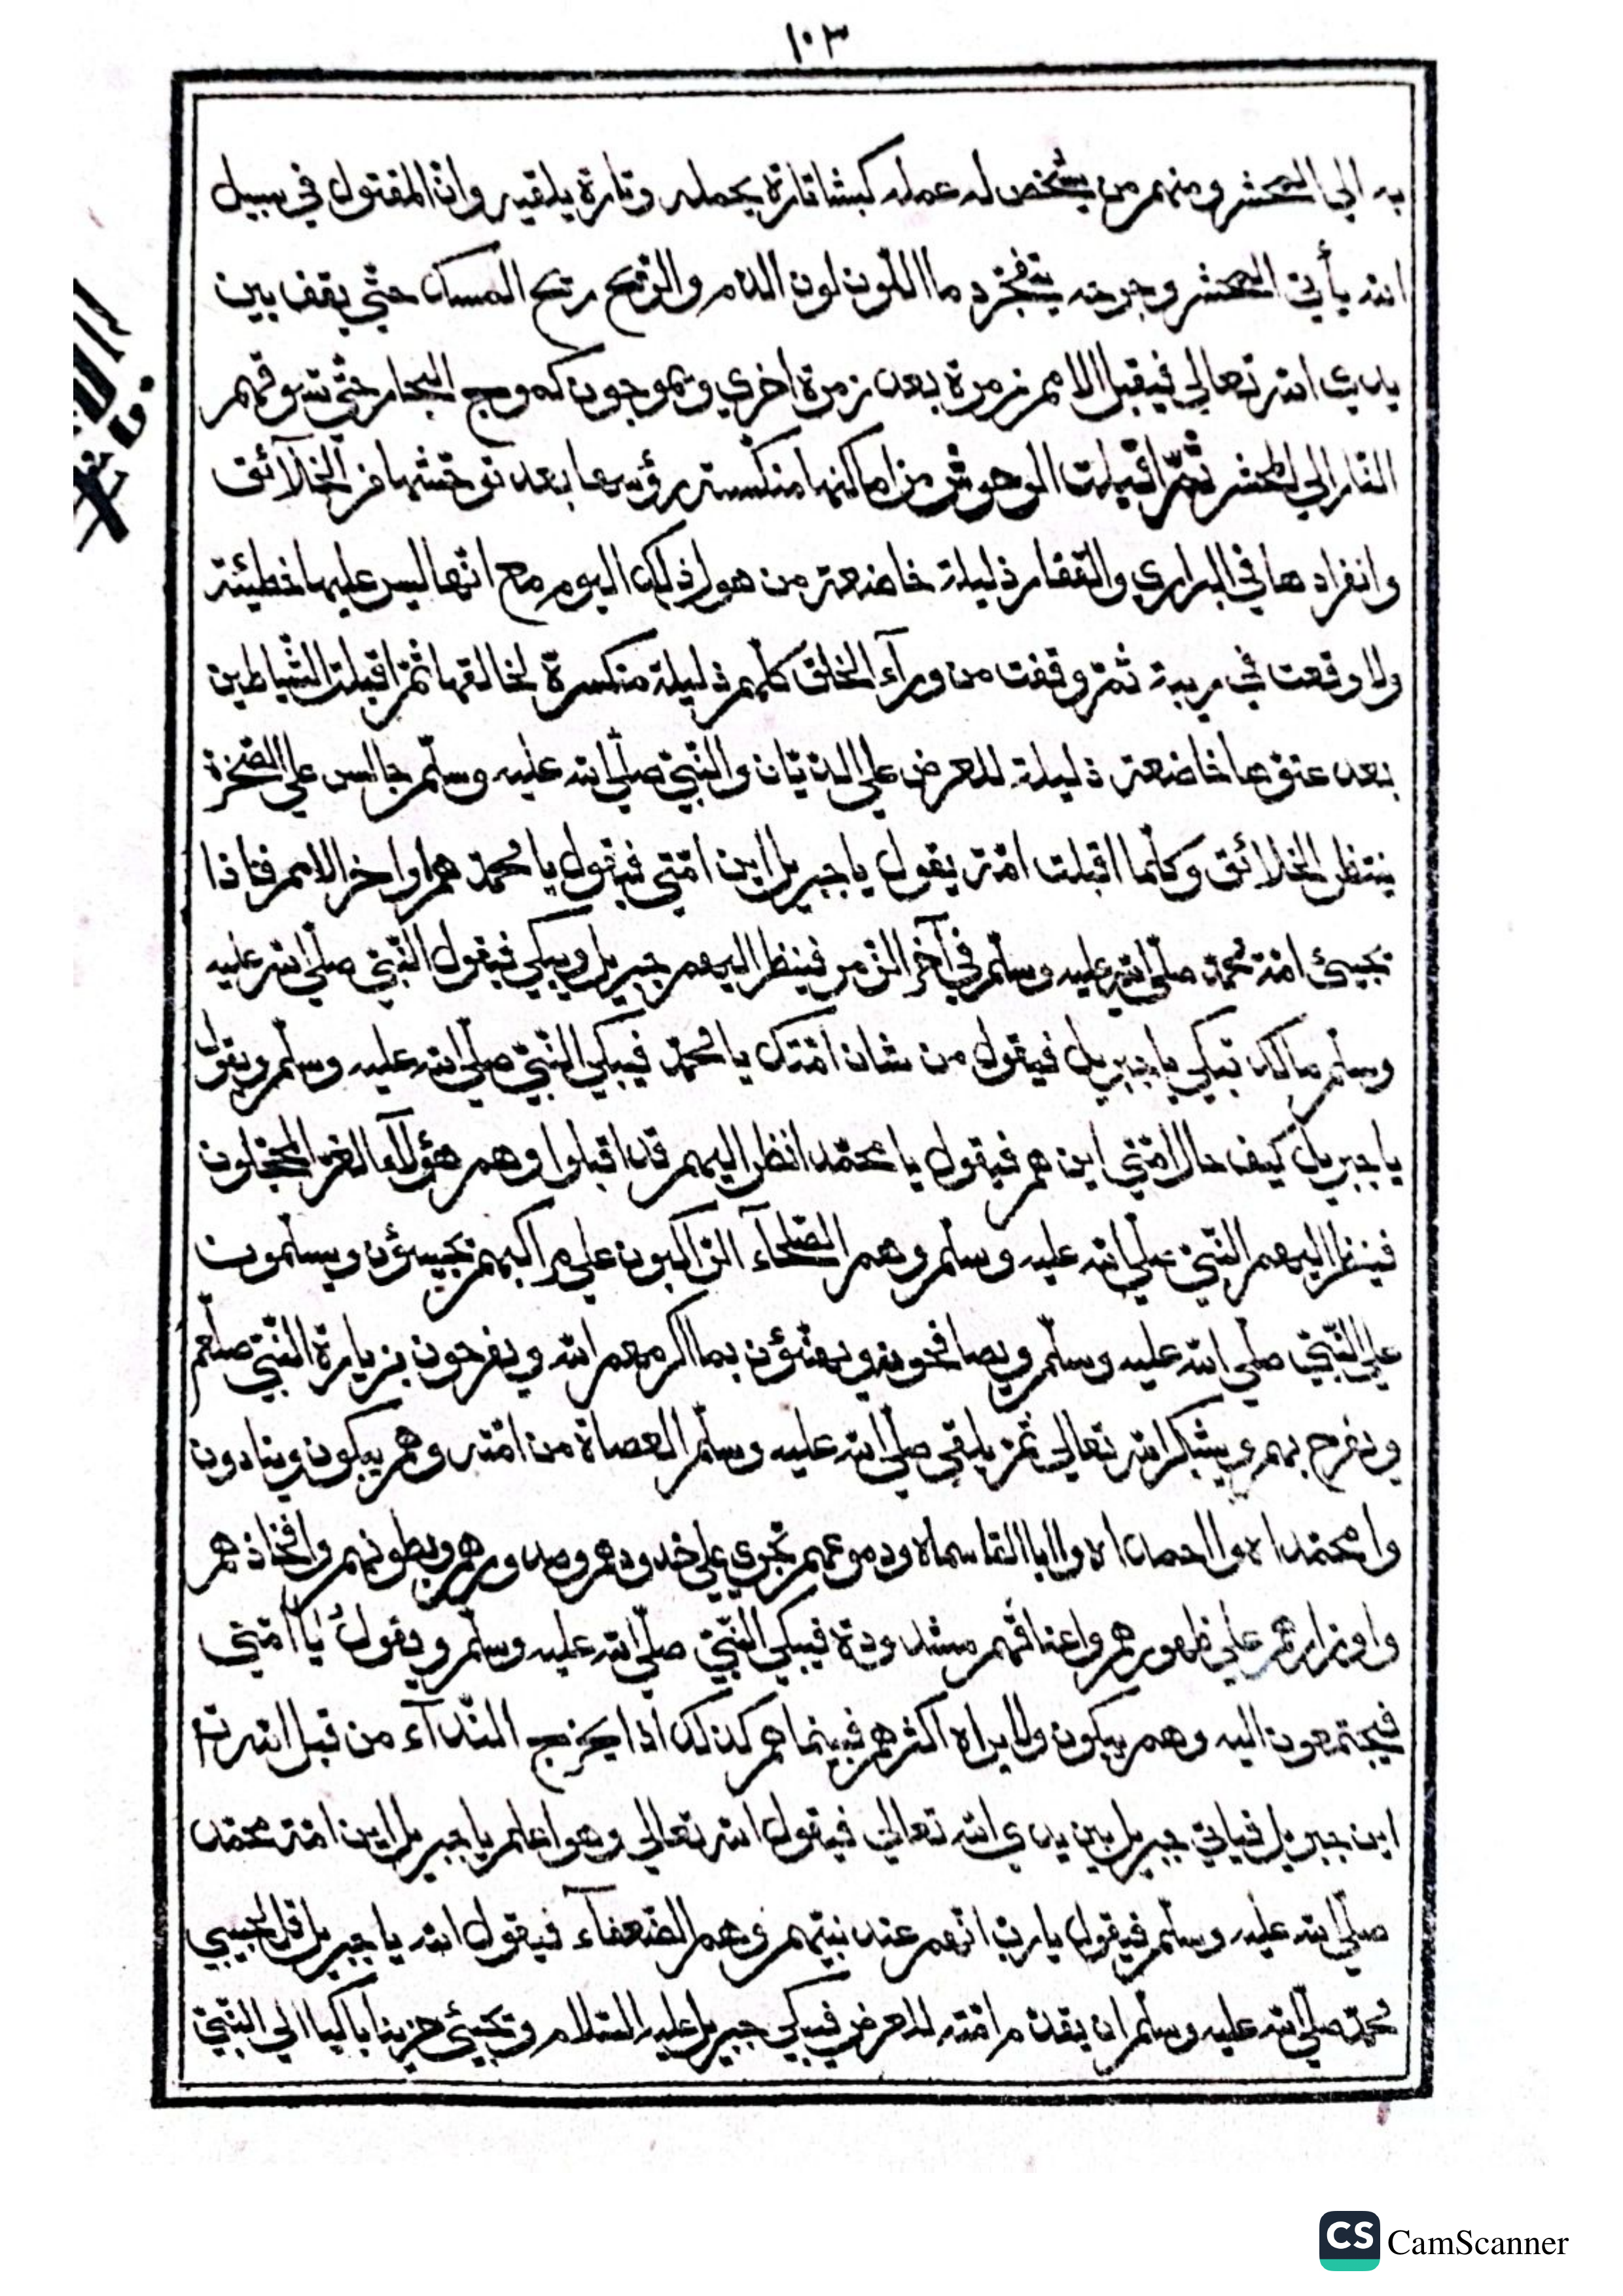 ١٠٣
به الي المحشر ومنهم من يشخص له عمله كبشا تارة يحمله وتارة يلقيه وانّ المقتول في سبيل
الله يأتي المحشر وجرحه يتفجّر دما اللّون لون الدّم والرّيح ريح المسك حتّي يقف بين
يدي الله تعالي فيقبل الامم زمرة بعد زمرة اخري ويموجون كموج البحار حتّي تسوقهم
النّار الي المحشر ثمّ اقبلت الوحوش من اماكنها منكّسة رؤسها بعد توحّشها من الخلآئق
وانفرادها في البراري والقفار ذليلة خاضعة من هول ذلك اليوم مع انّها ليس عليها خطيئة
ولا وقعت في ريبة ثمّ وقفت من ورآء الخلق كلّهم ذليلة منكسرة لخالقها ثمّ اقبلت الشّياطين
بعد عتوّها خاضعة ذليلة للعرض علي الدّيّان والنّبيّ صلّي الله عليه وسلّم جالس علي الصّخرة
ينتظر الخلائق وكلّما اقبلت امّة يقول يا جبريل اين امّتي فيقول يا محمّد هم اواخر الامم فاذا
تجيئ امّة محمّد صلّي الله عليه وسلّم في آخر الزّمر فينظر اليهم جبريل ويبكي فيقول النّبيّ صلّي الله عليه
وسلّم مالك تبكي يا جبريل فيقول من شان امّتك يا محمّد فيبكي النّبيّ صلّي الله عليه وسلّم ويقول
يا جبريل كيف حال امّتي اين هم فيقول يا محمّد انظر اليهم قد اقبلوا وهم هؤلآء الغرّ المحجّلون
فينظر اليهم النّبيّ صلّي الله عليه وسلّم وهم الصّلحآء الرّاكبون علي مراكبهم يجيئون ويسلّمون
علي النّبيّ صلّي الله عليه وسلّم ويصافحونه ويهنّؤن بما اكرمهم الله ويفرحون بزيارة النّبيّ صلعم
ويفرح بهم ويشكر الله تعالي ثمّ يلقي صلّي الله عليه وسلّم العصاة من امّته وهم يبكون وينادون
وا محمّداه وا احمداه وا ابا القاسماه ودموعهم تجري علي خدودهم وصدورهم وبطونهم وافخاذهم
واوزارهم علي ظهورهم واعناقهم مشدودة فيبكي النّبيّ صلّي الله عليه وسلّم ويقول يا امّتي
فيجتمعون اليه وهم يبكون ولا يراه اكثرهم فبينما هم كذلك اذا يخرج النّدآء من قبل الله تع
اين جبريل فياتي جبريل بين يدي الله تعالي فيقول الله تعالي وهو اعلم يا جبريل اين امّة محمّد
صلّي الله عليه وسلّم فيقول يا ربّ انّهم عند نبيّهم وهم الضّعفآء فيقول الله يا جبريل قل لحبيبي
محمّد صلّي الله عليه وسلّم ان يقدّم امّته للعرض فيبكي جبريل عليه السّلام ويجيئ حزينا باكيا الي النّبيّ
CS CamScanner